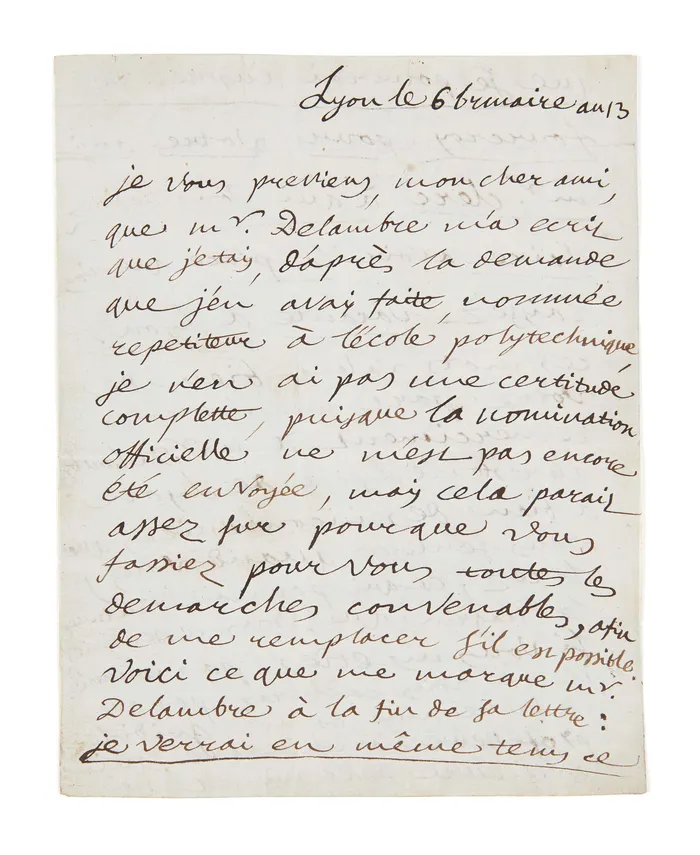 Lyon le 6 brumaire an 13
je vous previens, mon cher ami,
que mr. Delambre m'a ecrit
que j'etais, d'après la demande
que j'en avais faite, nommée
repetiteur à l'école polytechnique
je n'en ai pas une certitude
complette, puisque la nomination
officielle ne m'est pas encore
été envoyée, mais cela parait
assez sur pour que vous
fassiez pour vous toutes les
demarches convenables, afin
de me remplacer s'il est possible.
voici ce que me marque mr.
Delambre à la fin de sa lettre:
je verrai en même tems ce